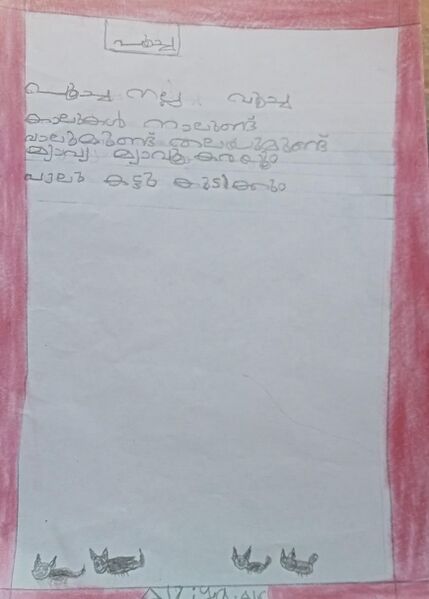 പൂച്ച
പൂച്ച നല്ല പൂച്ച
കാലുകൾ നാലുണ്ട്
വാലുമുണ്ട് തലയുമുണ്ട്
മ്യാവൂ മ്യാവൂ കരയും
പാലു കട്ടു കുടിക്കും